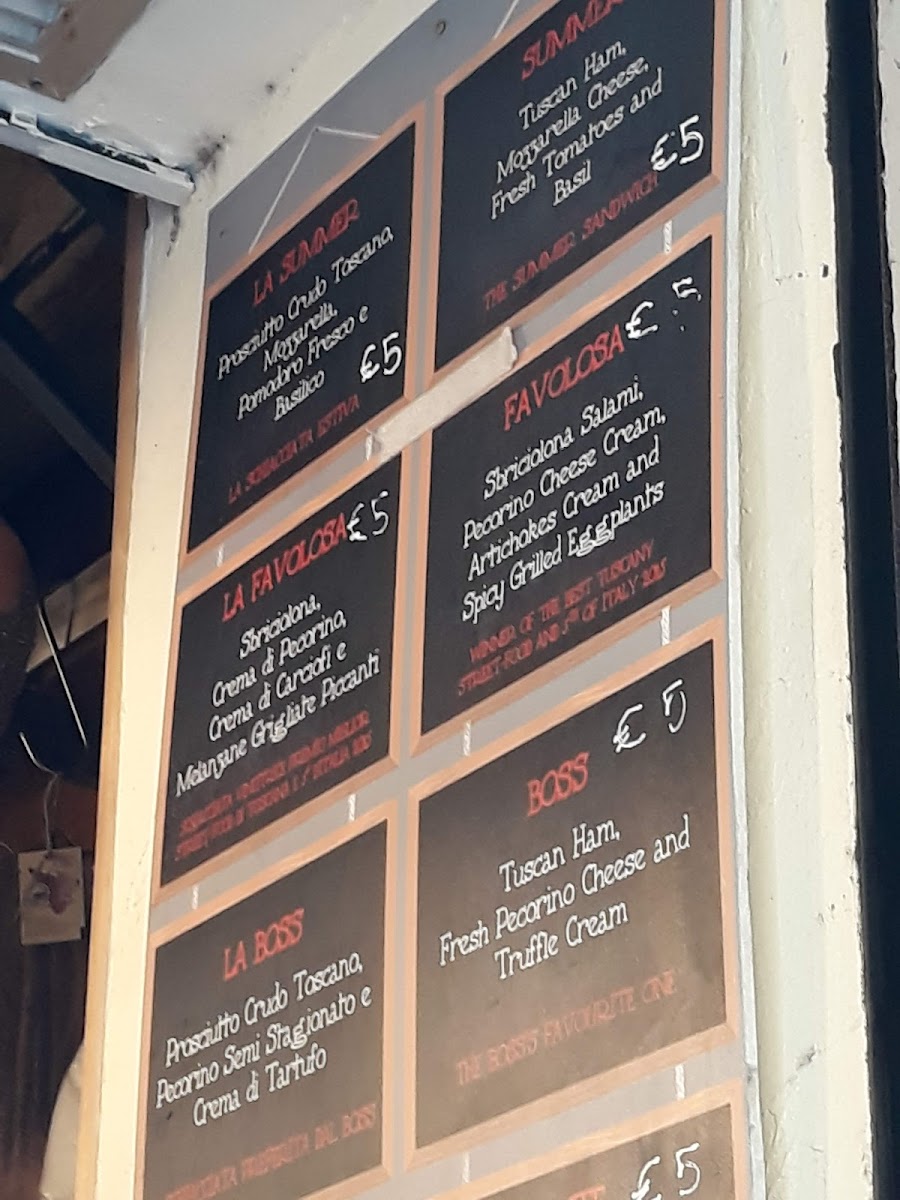 LA SUMMER
Prosciutto Crudo Toscano,
Mozzarella,
Pomodoro Fresco e
Basilico
€5
LA SCHIACCIATA ESTIVA
SUMMER
Tuscan Ham,
Mozzarella Cheese,
Fresh Tomatoes and
Basil
€5
THE SUMMER SANDWICH
LA FAVOLOSA €5
Sbriciolona,
Crema di Pecorino,
Crema di Carciofi e
Melanzane Grigliate Piccanti
SCHIACCIATA PREMIO MIGLIOR
STREET-FOOD DI TOSCANA E 5° D'ITALIA 2015
FAVOLOSA € 5
Sbriciolona Salami,
Pecorino Cheese Cream,
Artichokes Cream and
Spicy Grilled Eggplants
WINNER OF THE BEST TUSCANY
STREET-FOOD AND 5TH OF ITALY 2015
LA BOSS
Prosciutto Crudo Toscano,
Pecorino Semi Stagionato e
Crema di Tartufo
SCHIACCIATA PREFERITA DAL BOSS
€ 5
BOSS
Tuscan Ham,
Fresh Pecorino Cheese and
Truffle Cream
THE BOSS'S FAVOURITE ONE
€5